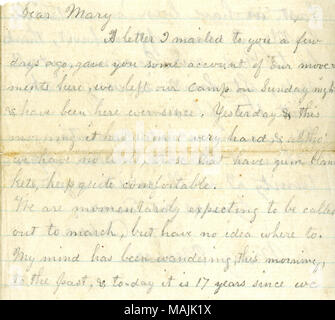 Dear Mary
A letter I mailed to you a few
days ago, gave you some account of our move
ments here, we left our camp on Sunday nigh
& have been here ever since. Yesterday & this
morning it has very hard & altho
we have no have gum blan
kets, keep quite comfortable.
We are momentarily expecting to be called
out to march, but have no idea where to.
My mind has been wandering, this morning,
to the past, & to-day it is 17 years since we
alamy
Image ID: MAJK1X
www.alamy.com